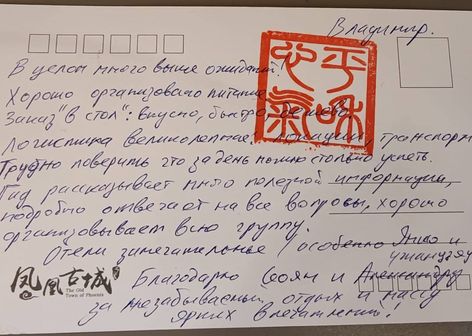 Владимир.
心平
氣和
В целом много выше ожиданий!
Хорошо организовано питание.
Заказ "в стол": вкусно, быстро, дешево.
Логистика великолепная: локации, транспорт
Трудно поверить что за день можно столько успеть.
Гид рассказывает много полезной информации,
подробно отвечает на все вопросы, хорошо
организовывает всю группу.
Отели замечательные (особенно Яншо и
Благодарю и Александру
за незабываемый отдых и массу
ярких впечатлений!
凤凰古城
The Old
Town of Phoenix